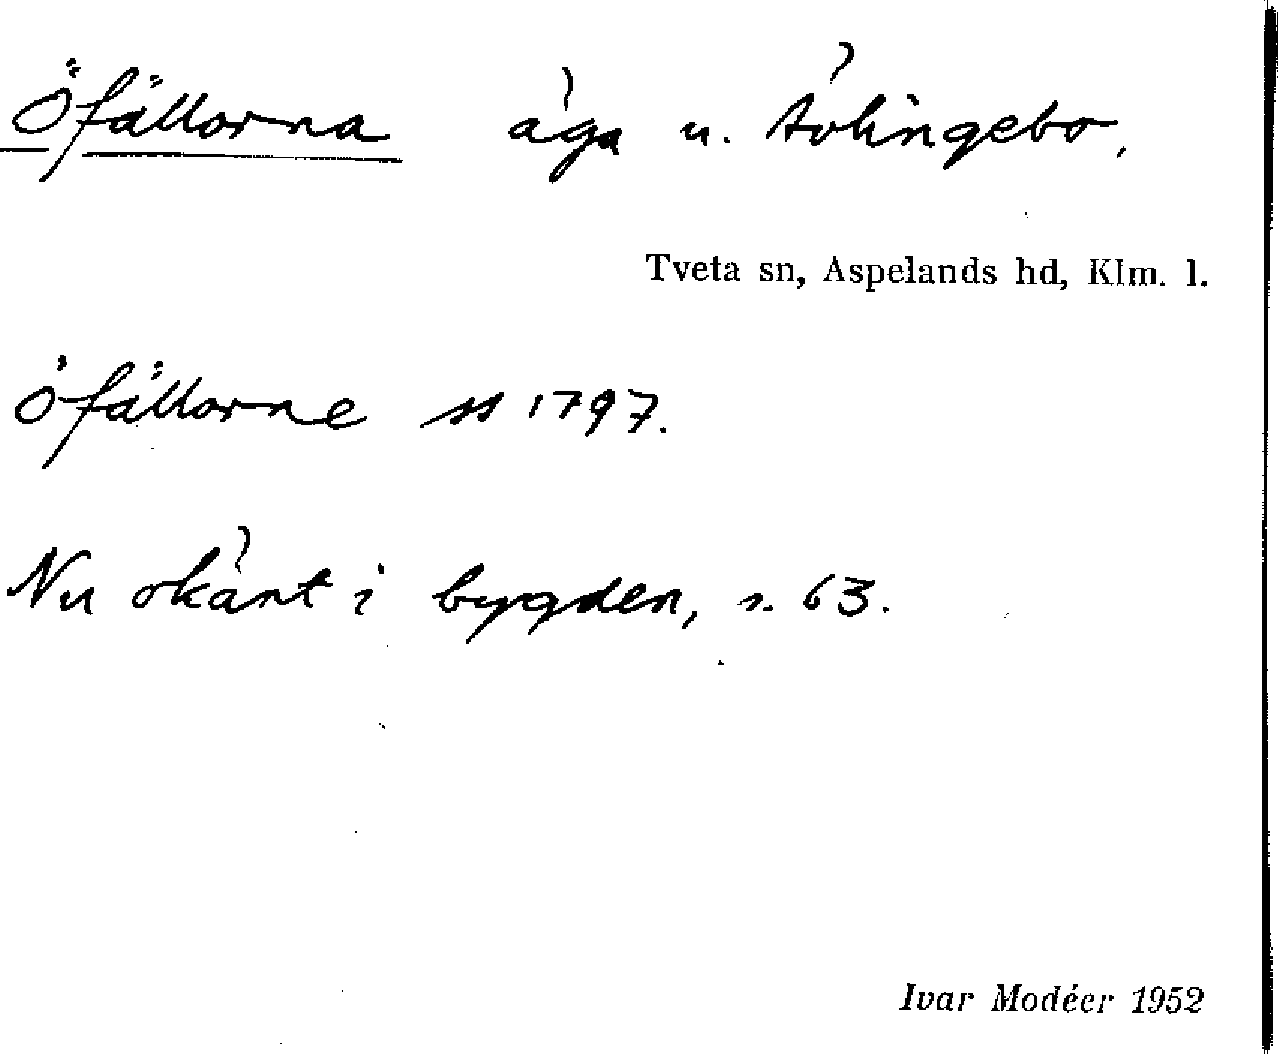 Öfällorna äga u. Tvlingebo,
Tveta sn, Aspelands hd, Klm. l.
Öfällorne ss 1797.
Nu okänt i bygden, s. 63.
Ivar Modéer 1952